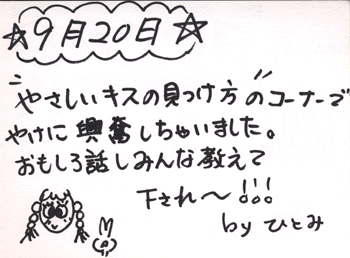 ☆9月20日☆
"やさしいキスの見つけ方"のコーナーで
やけに興奮しちゃいました。
おもしろ話しみんな教えて
下され〜!!!
by ひとみ